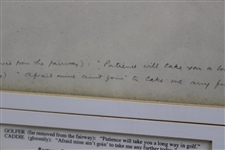 from the fairway): "Patience will take you a lo
): "Afraid mine aint goin' to take me any fur
GOLFER (far removed from the fairway): "Patience will take you a long way in golf."
CADDIE (gloomily): "Afraid mine ain't goin' to take me any further today